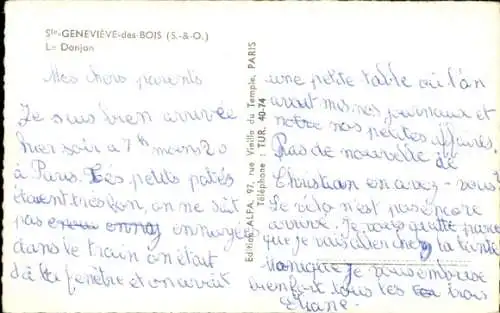 Ste-GENEVIÈVE-des-BOIS (S.-&-O.)
Le Donjon
Mes chers parents
Je suis bien arrivée
hier soir a 7h moins 20
à Paris. Les petits patés
étaient très bon, on ne sait
pas ennoy en nanger
dans le train on était
à la fenêtre et on avait
une petite table où l'on
avait mis nos journaux et
notre nos petites affaires.
Pas de nouvelle de
Christian en avez-vous?
Le vélo n'est pas encore
arrivé. Je vous quitte parce
que je vais chercher la tante
Monique je vous embrasse
bien fort tous les trois
Eliane.
Edition ALFA, 97, rue Vieille du Temple, PARIS
Téléphone : TUR. 40-74